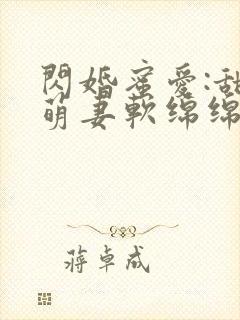 閃婚蜜愛:甜
萌妻軟綿綿
蔣卓成